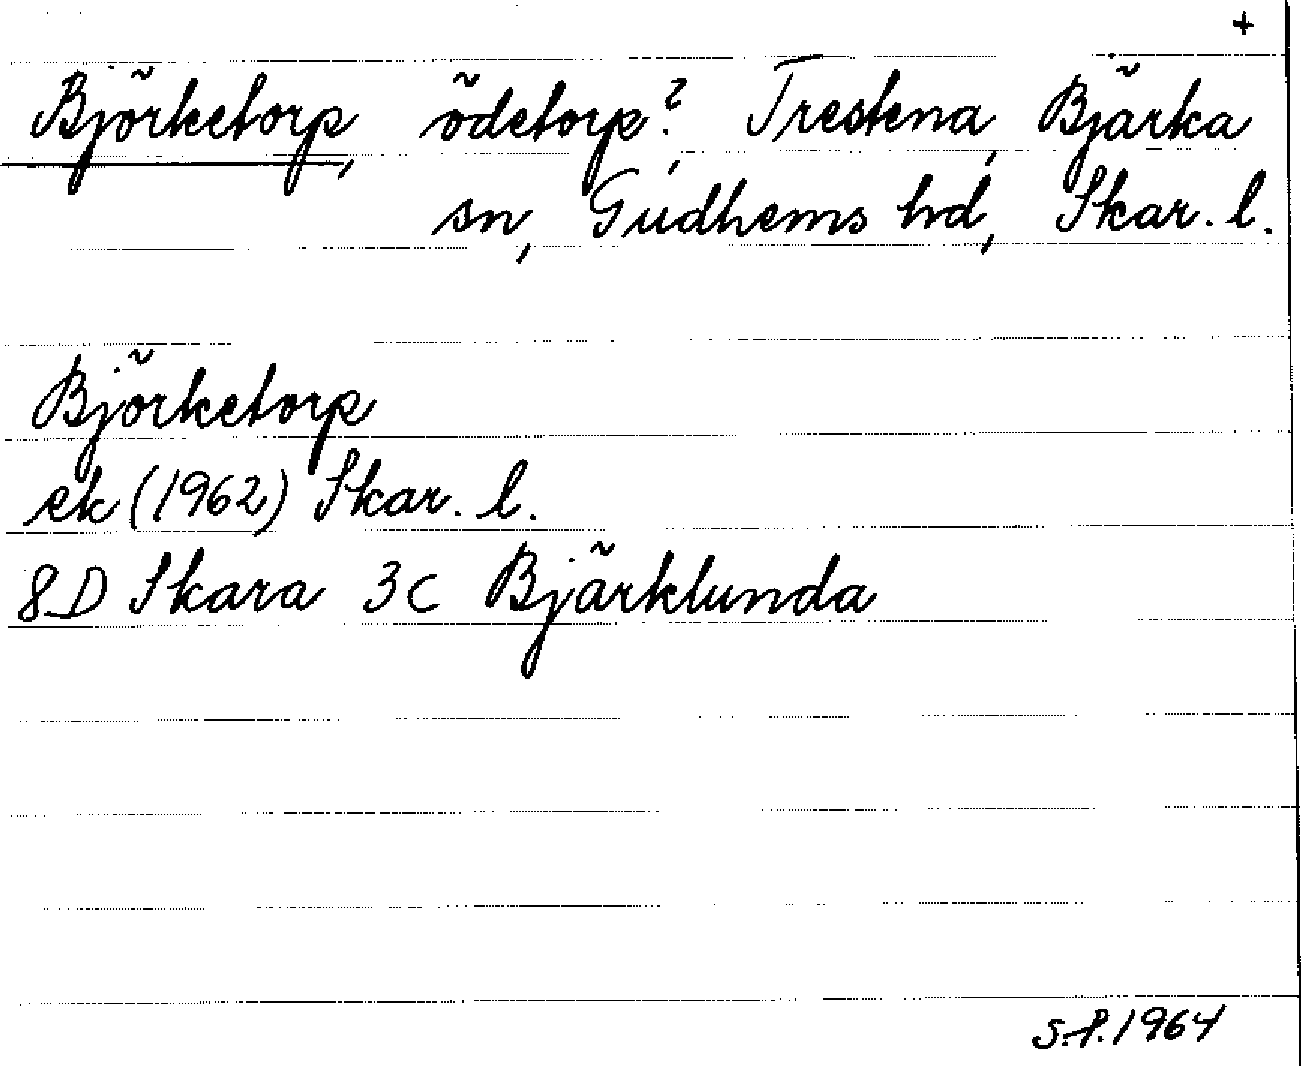 +
Björketorp, ödetorp?, Trestena, Bjärka
sn, Gudhems hd, Skar. l.
Björketorp
ek (1962) Skar. l.
8D Skara 3c Bjärklunda
S.F. 1964